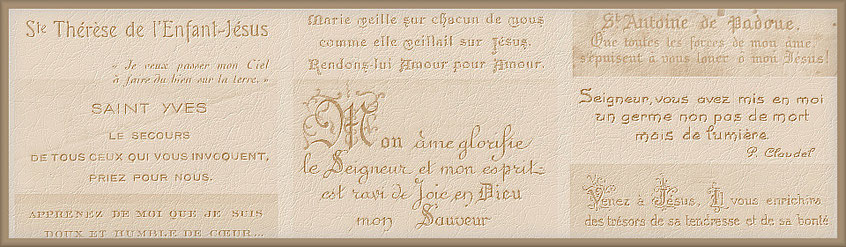 Ste Thérèse de l'Enfant-Jésus
« Je veux passer mon Ciel
à faire du bien sur la terre. »
SAINT YVES
LE SECOURS
DE TOUS CEUX QUI VOUS INVOQUENT,
PRIEZ POUR NOUS.
APPRENEZ DE MOI QUE JE SUIS
DOUX ET HUMBLE DE CŒUR...
Marie veille sur chacun de vous
comme elle veillait sur Jésus.
Rendons-lui Amour pour Amour.
Mon âme glorifie
le Seigneur et mon esprit
est ravi de Joie en Dieu
mon Sauveur
St Antoine de Padoue,
Que toutes les forces de mon âme
s'épuisent à vous louer ô mon Jésus!
Seigneur, vous avez mis en moi
un germe non pas de mort
mais de lumière.
P. Claudel
Venez à Jésus, Il vous enrichira
des trésors de sa tendresse et de sa bonté